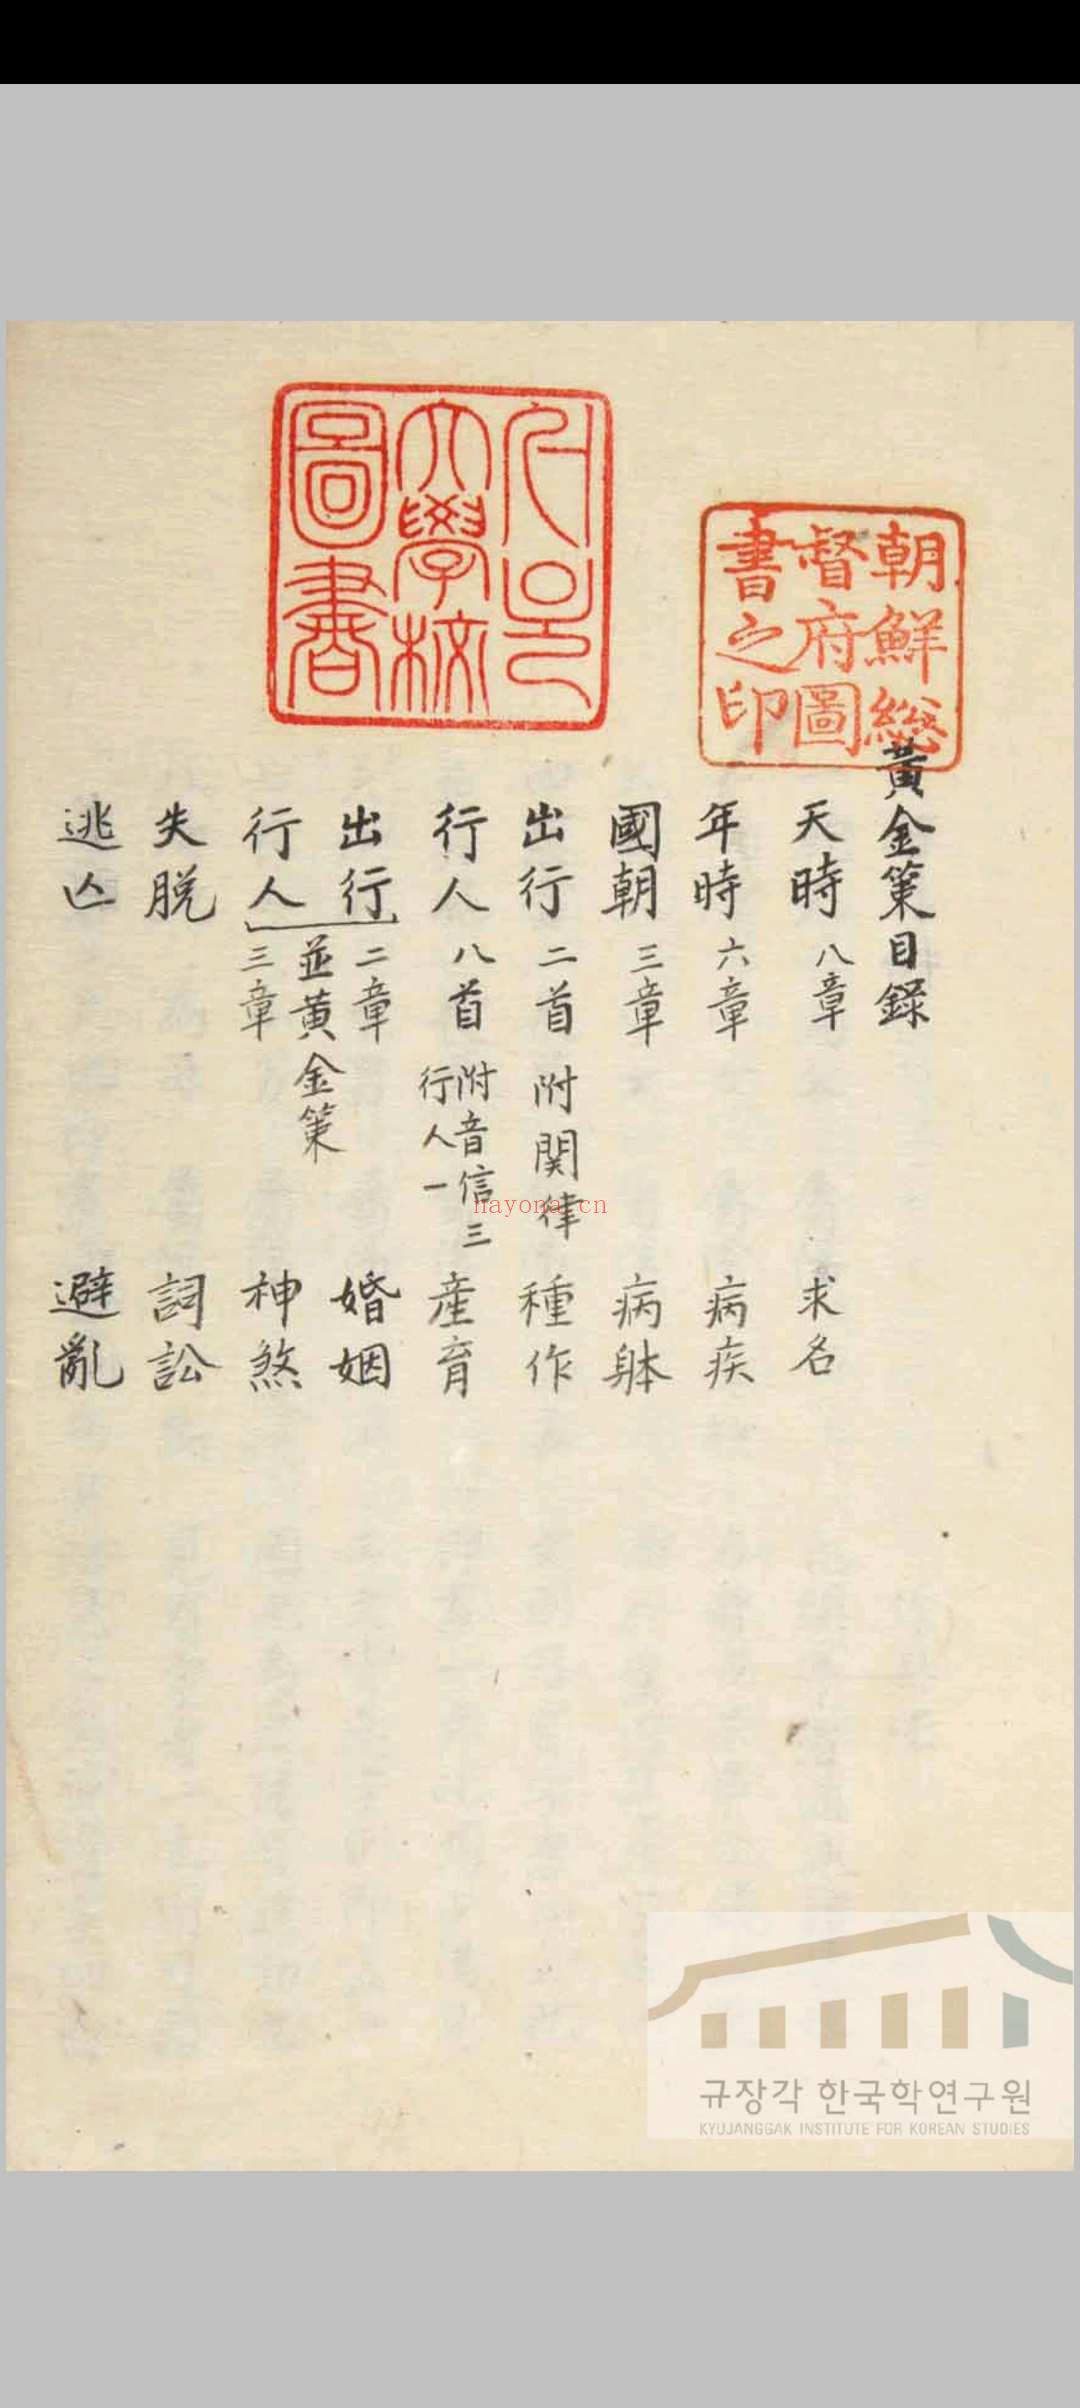 朝鮮総
督府圖
書之印
大學校
圖書
黃金策目錄
天時 八章 求名
年時 六章 病疾
國朝 三章 病躰
出行 二首 附関律 種作
行人 八首 附音信三 行人一 産育
出行 二章 婚姻
並黃金策
行人 三章 神煞
失脱 詞訟
逃亾 避亂
nayona.cn
규장각 한국학연구원
KYUJANGGAK INSTITUTE FOR KOREAN STUDIES